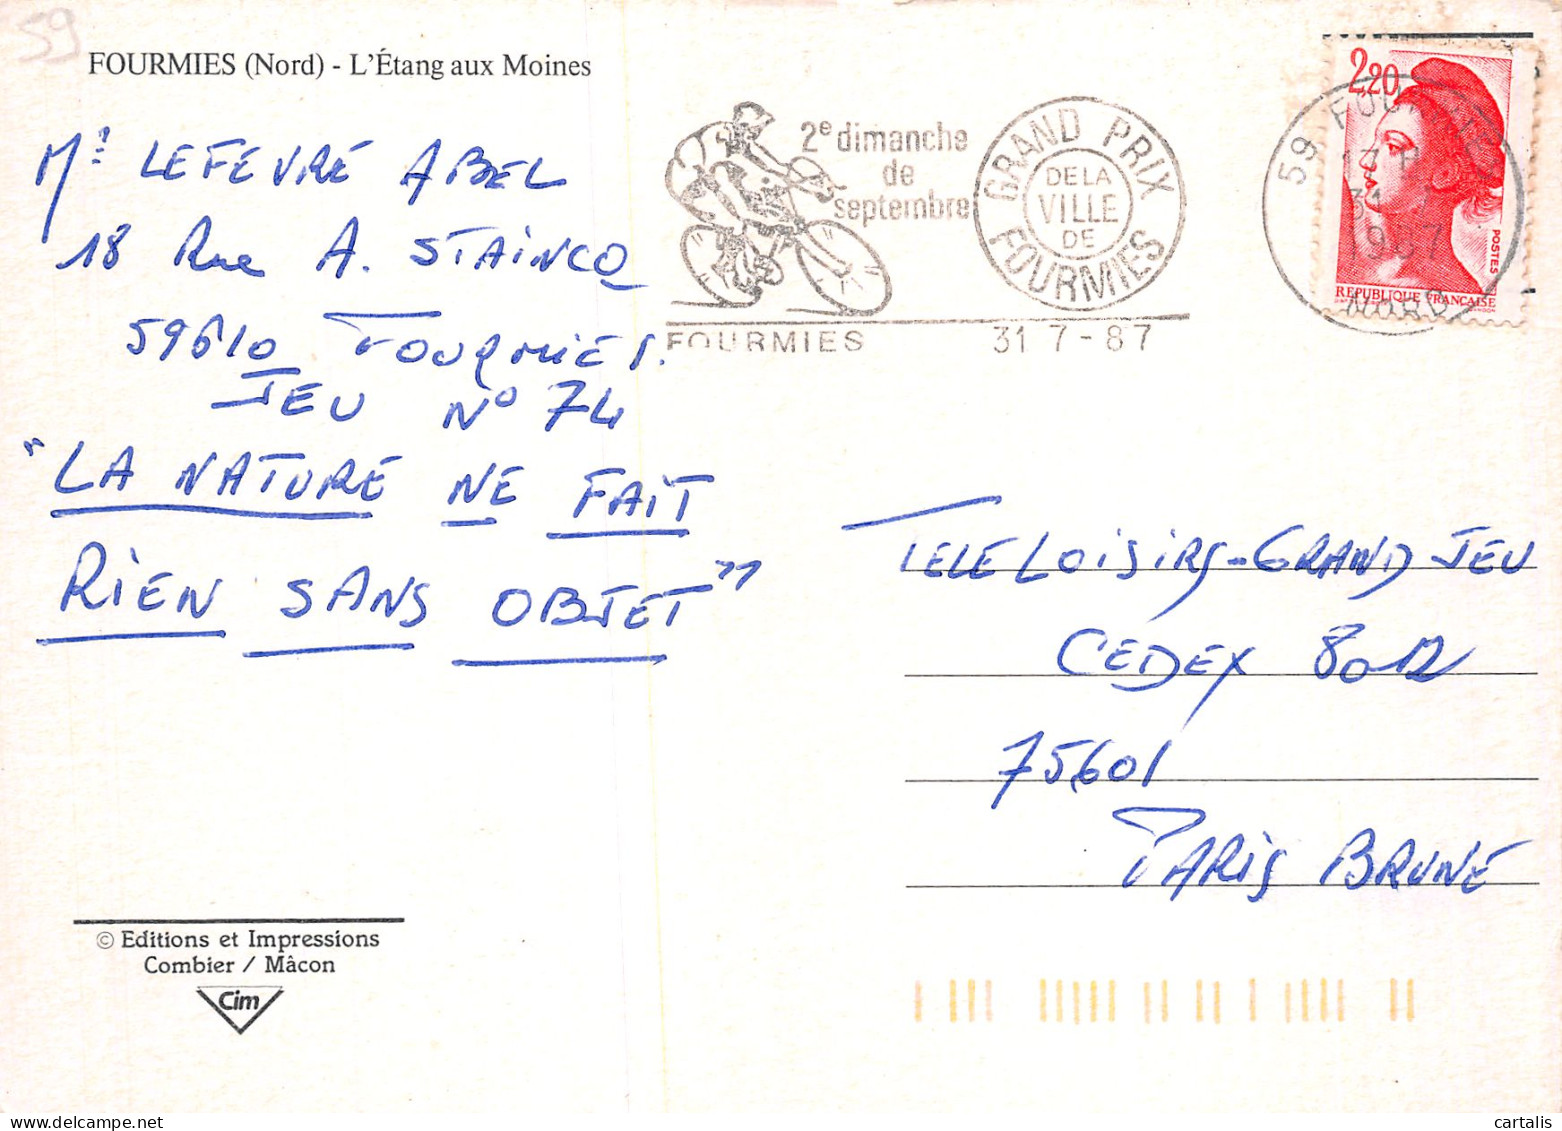 59
FOURMIES (Nord) - L'Étang aux Moines
Mr LEFEVRE ABEL
18 Rue A. STAINCQ
59610 FOURMIES.
JEU N° 74
"LA NATURE NE FAIT
RIEN SANS OBJET"
© Editions et Impressions
Combier / Mâcon
Cim
2e dimanche
de
septembre
GRAND PRIX
DE LA
VILLE
DE
FOURMIES
FOURMIES 31 7-87
2,20
POSTES
REPUBLIQUE FRANÇAISE
59 FOURMIES
17 H
31
1987
NORD
TELE LOISIRS-GRAND JEU
CEDEX 8012
75601
PARIS BRUNE
cartalis